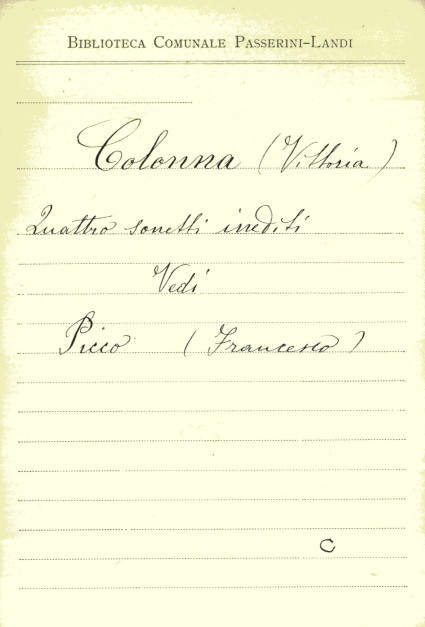 BIBLIOTECA COMUNALE PASSERINI-LANDI
Colonna (Vittoria)
Quattro sonetti inediti
Vedi
Picco (Francesco)
C